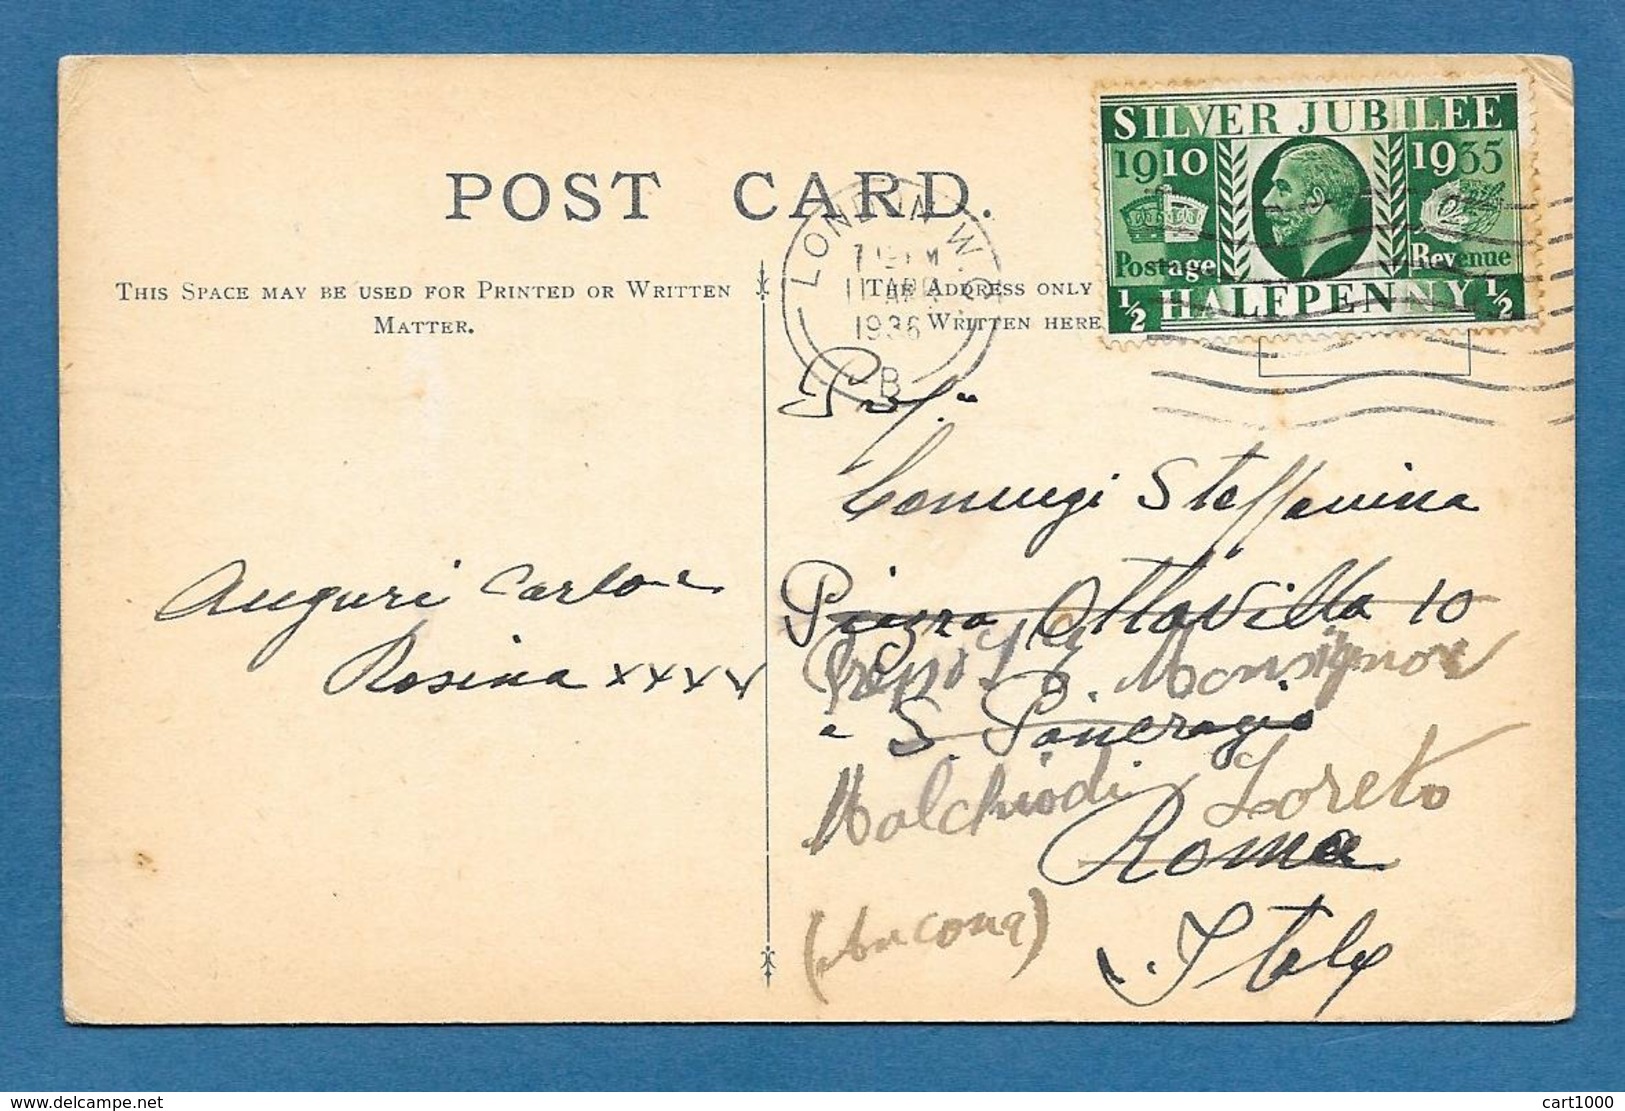 POST CARD.
THIS SPACE MAY BE USED FOR PRINTED OR WRITTEN
MATTER.
THE ADDRESS ONLY
WRITTEN HERE
SILVER JUBILEE
1910 1935
Postage Revenue
1/2 HALFPENNY 1/2
LONDON W
11 APR
1936
B
Coniugi Steffanina
Piazza Ottavilla 10
Presso S. E. Monsignor
a S. Pancrazio
Malchiodi Loreto
Roma
(Ancona)
Italy
Auguri Carlo e
Rosina xxxx
www.delcampe.net
cart1000